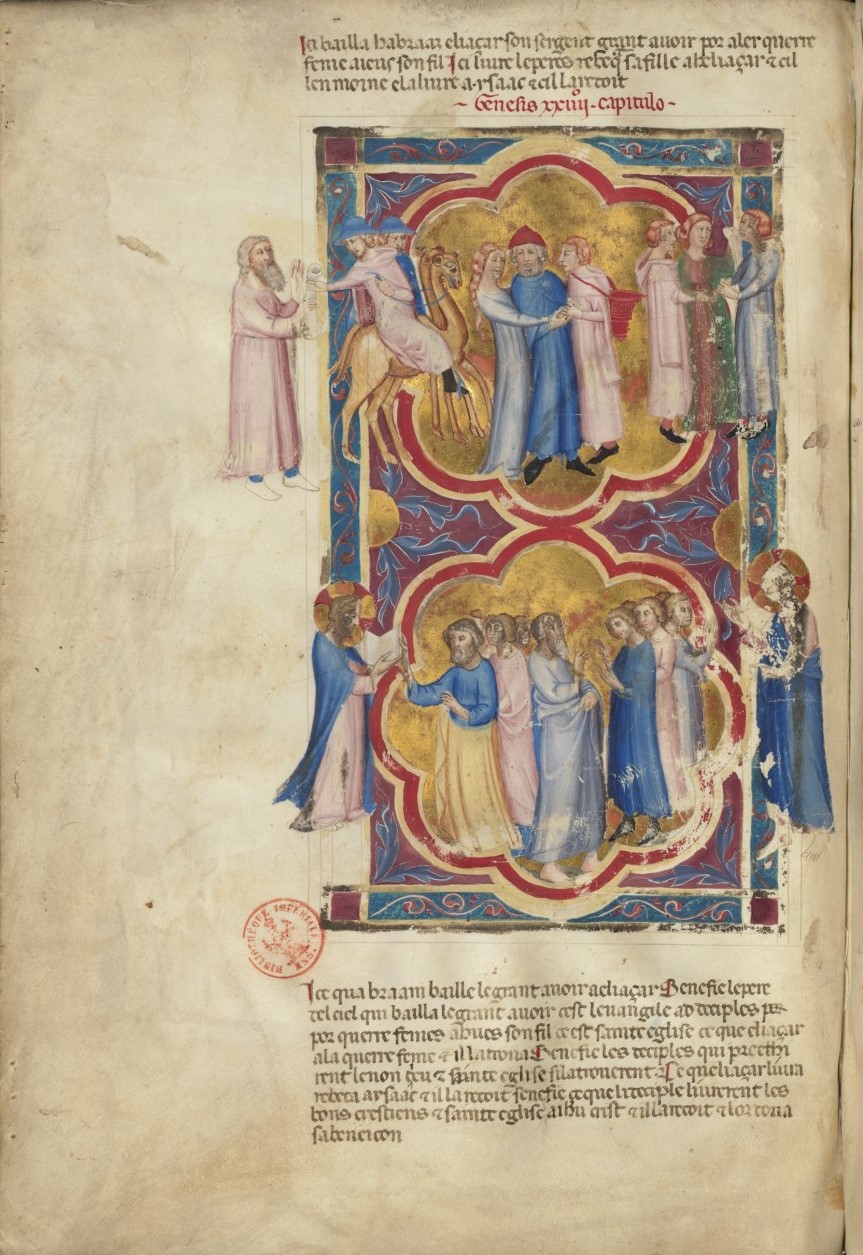 Ici bailla habraaz eliaçar son sergent grant avoir por aler querre
feme aieus son fil Ici livre le peres rebeq̃ sa fille a heliaçar ⁊ cil
len moine ela livre a.ysaac ⁊ cil la recoit
~ Genesis xxiiij.o capitulo ~
BIBLIOTHÈQUE IMPÉRIALE
Ice qua braam baille le grant avoir a eliaçar Senefie le pere
del ciel qui bailla le grant avoir cest levangile ad deciples
por querre femes a hues son fil ce est sainte eglise ce que eliaçar
ala querre feme ⁊ il la trova Senefie les deciples qui preechi
rent le non deu ⁊ sainte eglise si la troverent Ce que liaçar livra
rebeca a ysaac ⁊ il la recoit senefie ce que li deciple livrerent les
bons crestiens ⁊ sainte eglise a ihu crist ⁊ il la recoit ⁊ lor dona
sa beneicon